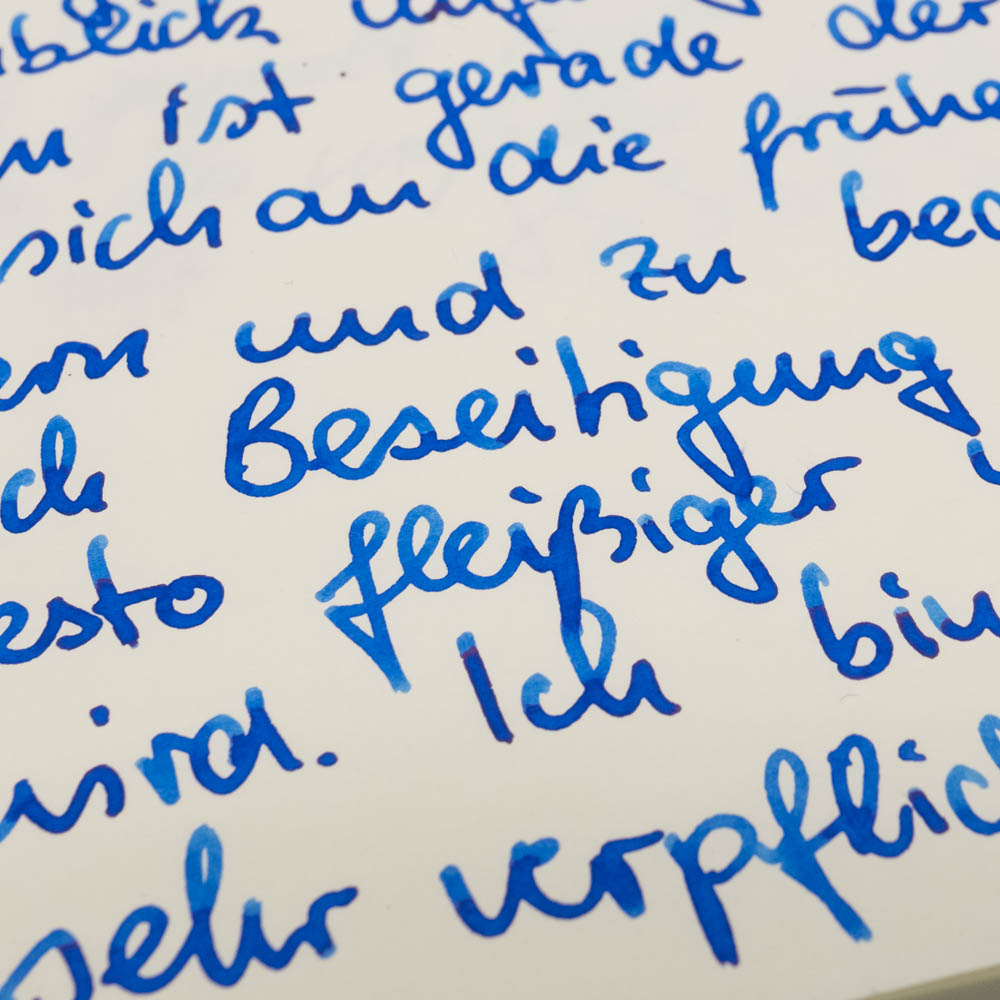 ist gerade der
sich an die frühe
ern und zu bea
ch Beseitigung
esto fleißiger
wird. Ich bin
sehr verpflic